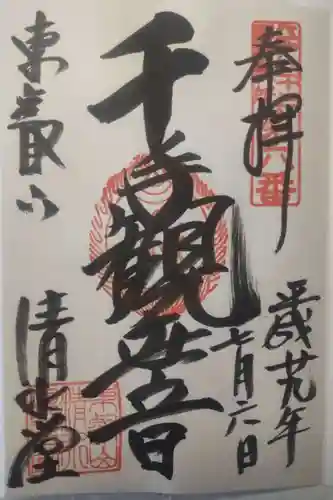 奉拝
平成廿九年
七月六日
千手観音
東叡山
清水堂